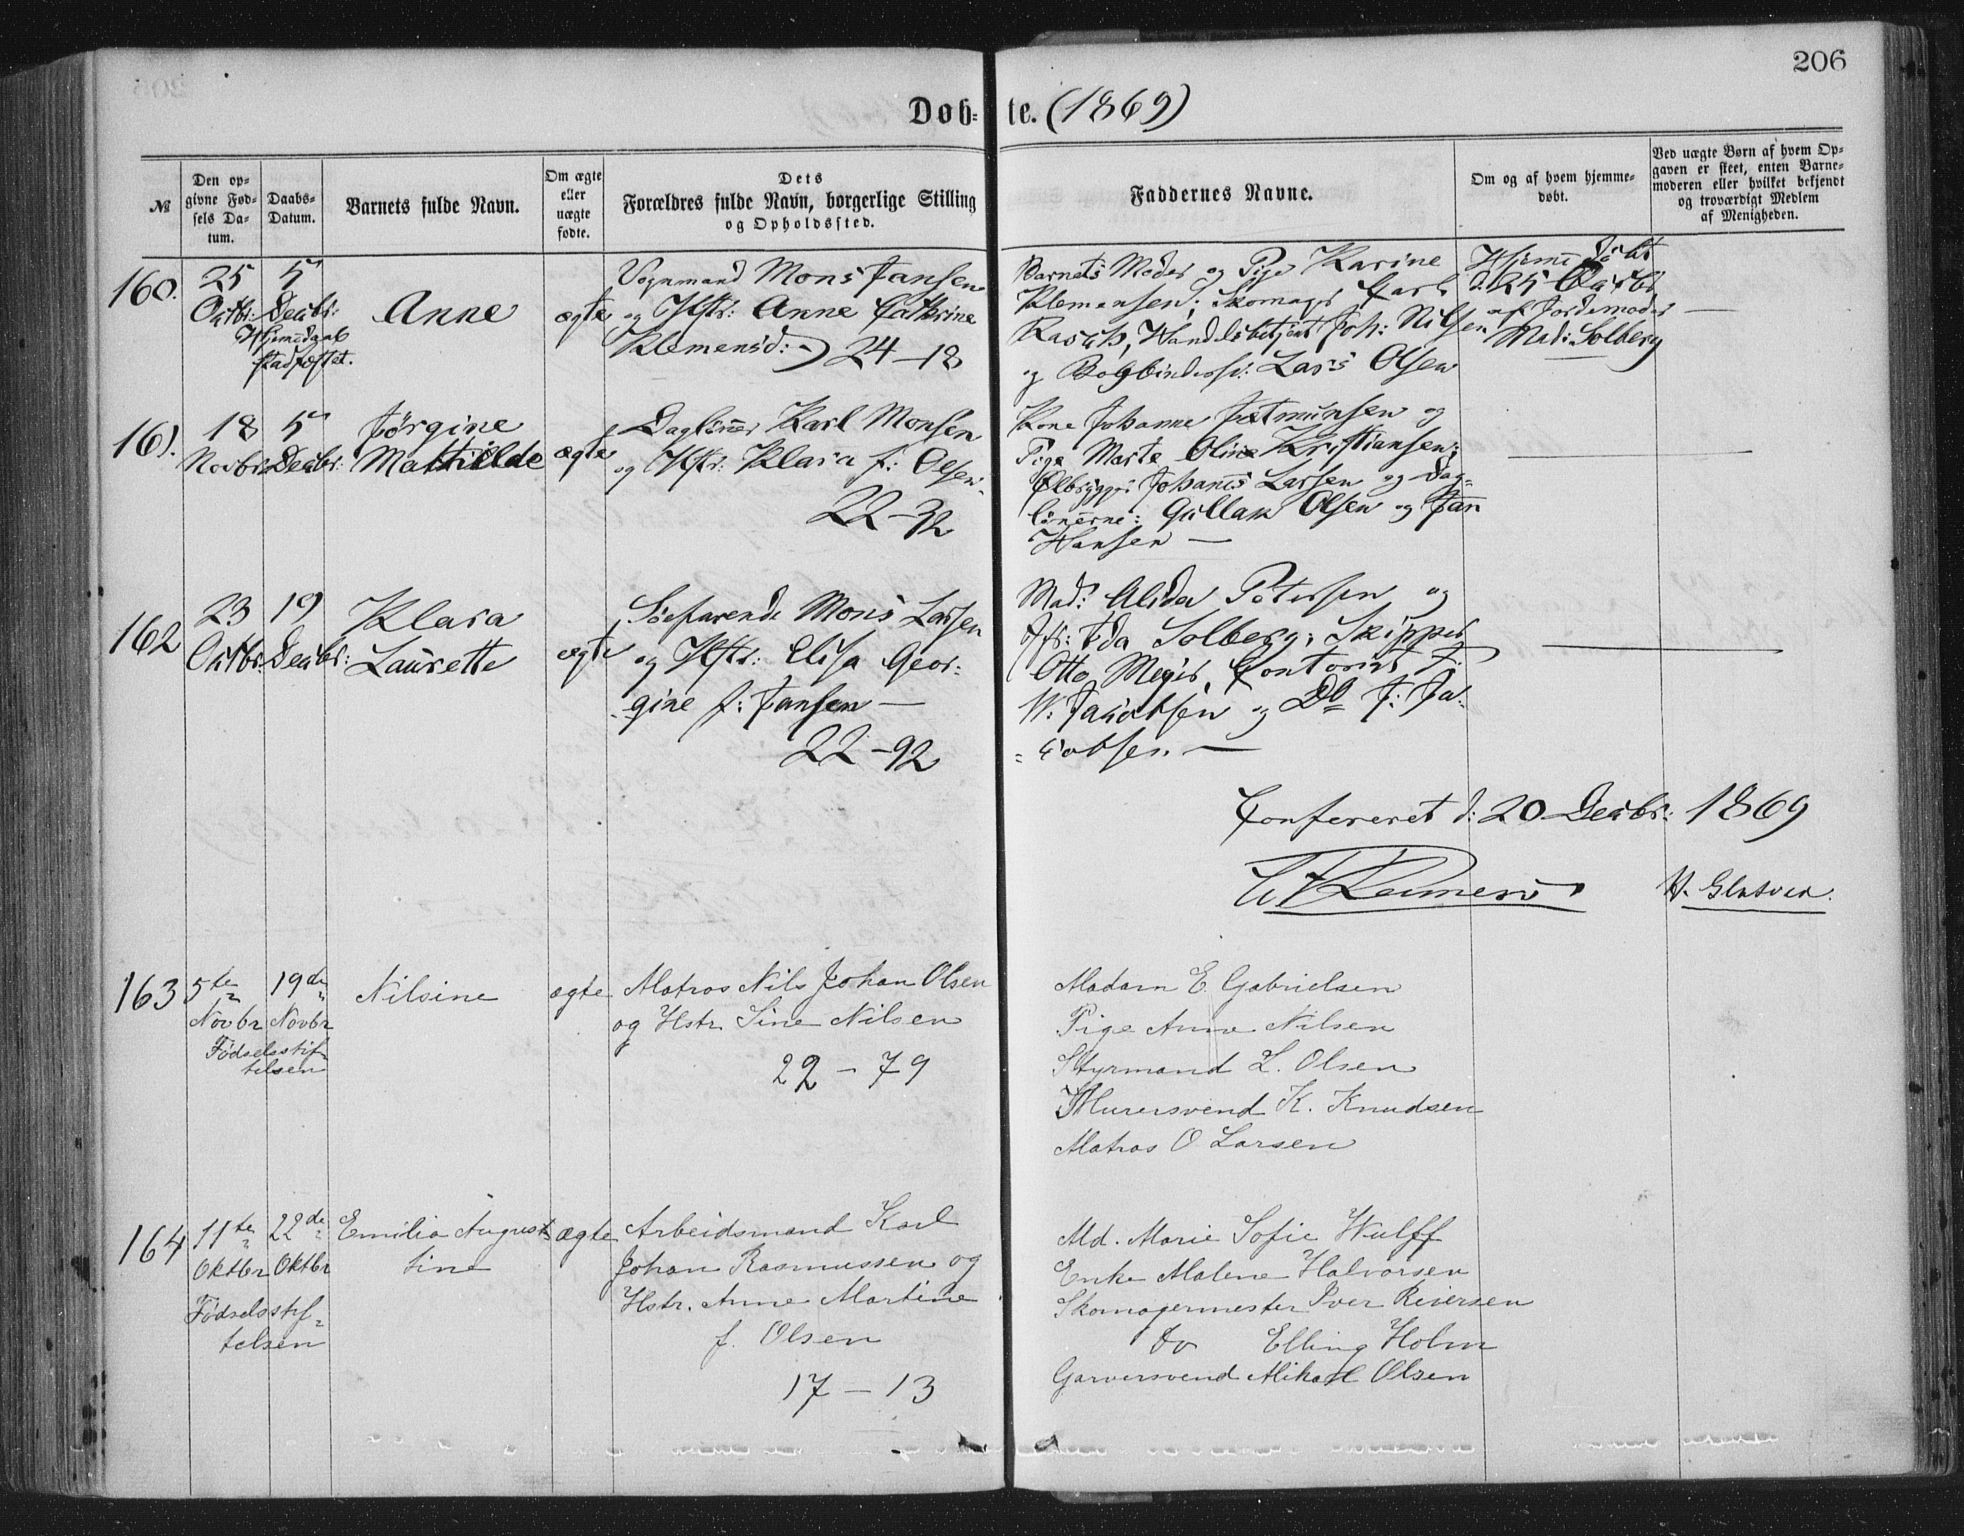 206
Døb- te. (1869)
№
Den op-
givne Fød-
sels Da-
tum.
Daabs-
Datum.
Barnets fulde Navn.
Om ægte
eller
uægte
fødte.
Dets
Forældres fulde Navn, borgerlige Stilling
og Opholdssted.
Faddernes Navne.
Om og af hvem hjemme-
døbt.
Ved uægte Børn af hvem Op-
gaven er skeet, enten Barne-
moderen eller hvilket bekjendt
og troværdigt Medlem
af Menigheden.
160.
25
Oktbr:
5
Decbr:
Hjemmedaab
stadfæstet.
Anne
ægte
Vognmand Mons Jansen
og Hstr: Anne Cathrine
Klemensd:
24-18
Barnets Moder og Pige Karine
Klemensen; Skomager Carl
Rasch, Handelsbetjent Joh: Nilsen
og Bogbindersv: Lars Olsen
Hjemmedøbt
d: 25 Octbr
af Jordemoder
Mad: Solberg
161.
18
Novbr:
5
Decbr:
Jørgine
Mathilde
ægte
Daglønner Karl Monsen
og Hstr: Klara f: Olsen.
22-32
Kone Johanne Jetmunsen og
Pige Marte Oline Kristiansen;
Ølbrygger Johanes Larsen og Dag-
lønnerne: Gullak Olsen og Jan
Hansen —
162
23
Oktbr:
19
Decbr:
Klara
Laurette
ægte
Søefarende Mons Larsen
og Hstr: Elisa Geor-
gine f: Jansen —
22-92
Mad: Alida Petersen og
Jfr: Ida Solberg; Skipper
Otto Meyer, Contorist F:
W: Jacobsen og Do J: Ja-
cobsen. —
Confereret d: 20 Decbr: 1869
H. Glatved.
163
5te
Novbr
19de
Novbr
Fødselsstif-
telsen
Nilsine
ægte
Matros Nils Johan Olsen
og Hstr. Sine Nilsen
22-79
Madam E. Gabrielsen
Pige Anne Nilsen
Styrmand L. Olsen
Murersvend K. Knudsen
Matros O. Larsen
164
11te
Oktbr
22de
Oktbr
Fødselsstif-
telsen
Emilie August-
tine
ægte
Arbeidsmand Karl
Johan Rasmussen og
Hstr. Anne Martine
f. Olsen
17-13
Md. Marie Sofie Wulff
Enke Malene Halvorsen
Skomagermester Iver Reiersen
Do Elling Holm
Garversvend Mikael Olsen